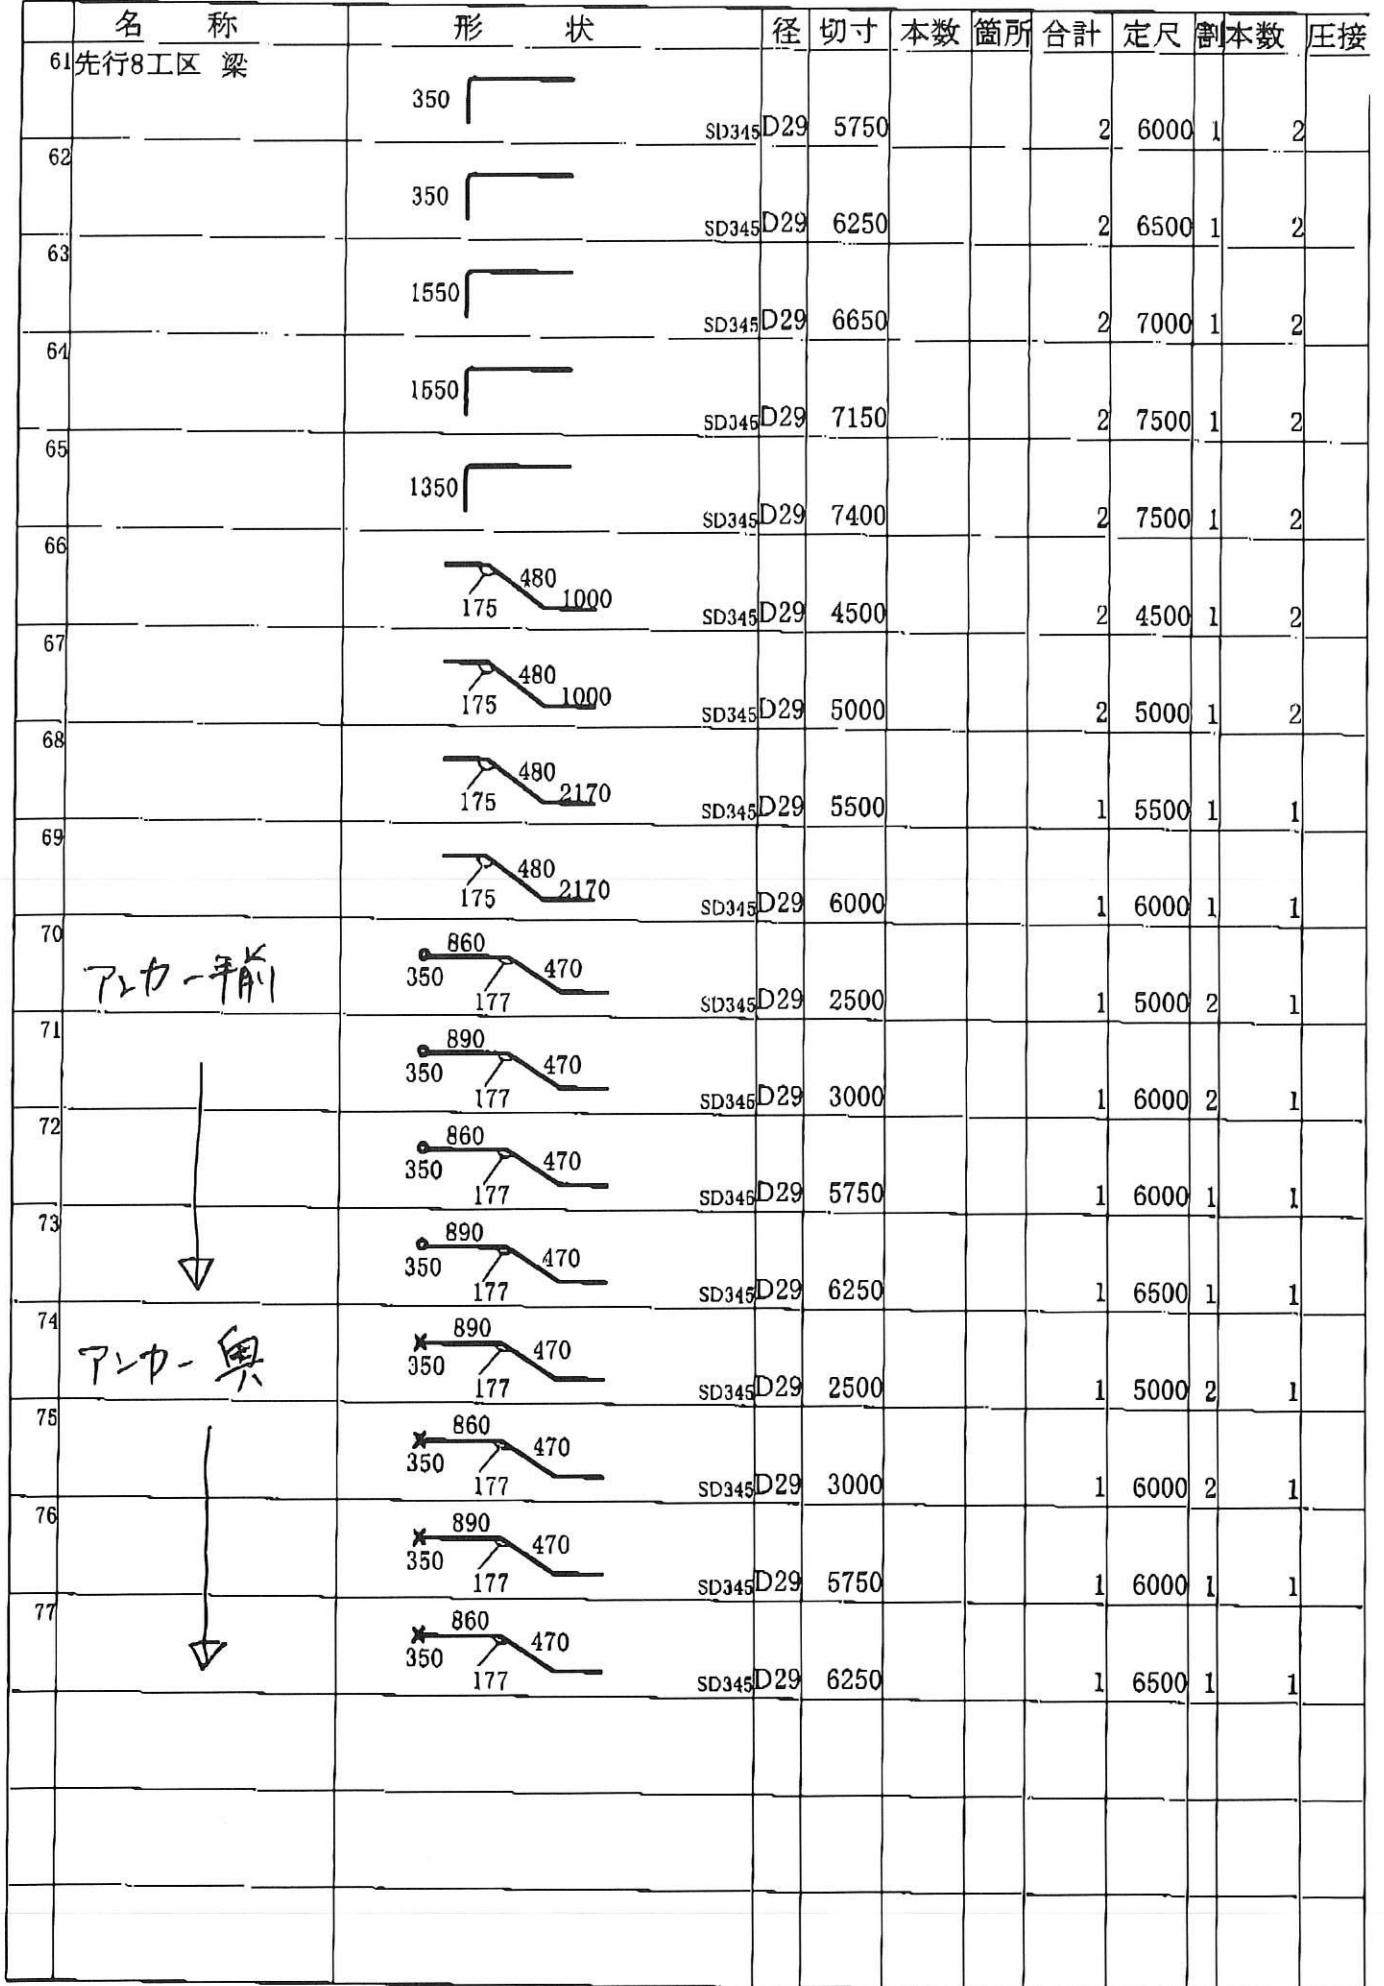 名 称 形 状 径 切寸 本数 箇所 合計 定尺 割 本数 圧接
61 先行8工区 梁 350 SD345 D29 5750 2 6000 1 2
62 350 SD345 D29 6250 2 6500 1 2
63 1550 SD345 D29 6650 2 7000 1 2
64 1550 SD345 D29 7150 2 7500 1 2
65 1350 SD345 D29 7400 2 7500 1 2
66 480 175 1000 SD345 D29 4500 2 4500 1 2
67 480 175 1000 SD345 D29 5000 2 5000 1 2
68 480 175 2170 SD345 D29 5500 1 5500 1 1
69 480 175 2170 SD345 D29 6000 1 6000 1 1
70 アンカー手前 860 350 177 470 SD345 D29 2500 1 5000 2 1
71 890 350 177 470 SD345 D29 3000 1 6000 2 1
72 860 350 177 470 SD345 D29 5750 1 6000 1 1
73 890 350 177 470 SD345 D29 6250 1 6500 1 1
74 アンカー奥 890 350 177 470 SD345 D29 2500 1 5000 2 1
75 860 350 177 470 SD345 D29 3000 1 6000 2 1
76 890 350 177 470 SD345 D29 5750 1 6000 1 1
77 860 350 177 470 SD345 D29 6250 1 6500 1 1